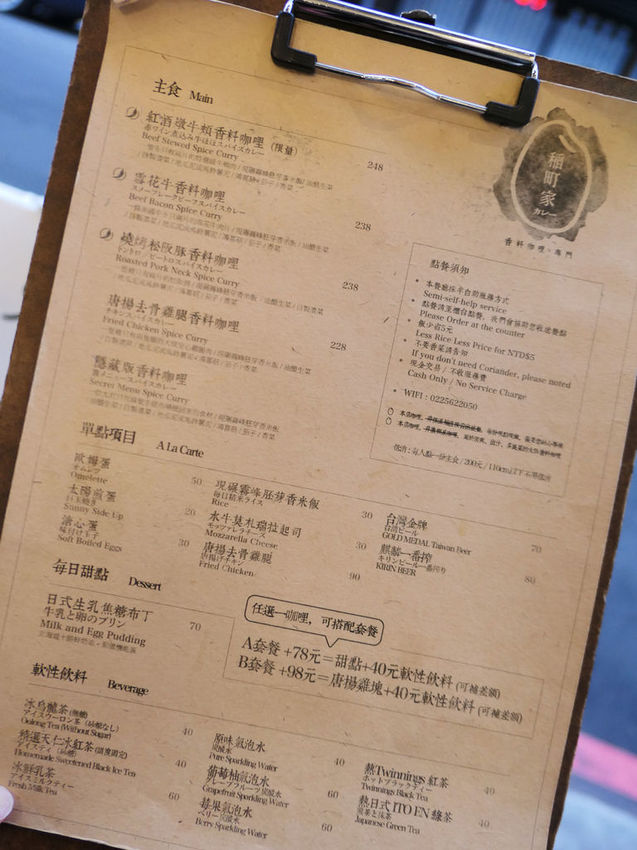 主食 Main
紅酒燉牛頰香料咖哩 (限量)
赤ワイン煮込み牛ほほスパイスカレー
Beef Stewed Spice Curry
248
雪花牛香料咖哩
スノーフレークビーフスパイスカレー
Beef Bacon Spice Curry
238
燒烤松阪豚香料咖哩
トントロ・ピートロスパイスカレー
Roasted Pork Neck Spice Curry
238
唐揚去骨雞腿香料咖哩
チキンスパイスカレー
Fried Chicken Spice Curry
228
隱藏版香料咖哩
裏メニュースパイスカレー
Secret Menu Spice Curry
稲町家
カレー
香料咖哩專門
點餐須知
• 本餐廳採半自助服務方式
Semi-self-help service
• 點餐請至櫃台點餐，我們會協助您收送餐點
Please Order at the counter
• 飯少省5元
Less Rice Less Price for NTD$5
• 不要香菜請告知
If you don't need Coriander, please noted
• 現金交易 / 不收服務費
Cash Only / No Service Charge
• WIFI : 0225622050
低消 : 每人點一份主食 / 200元 / 110cm以下不限低消
單點項目 A La Carte
歐姆蛋
オムレツ
Omelette
50
太陽煎蛋
目玉焼き
Sunny Side Up
20
溏心蛋
味付け玉子
Soft Boiled Eggs
30
現碾霧峰胚芽香米飯
毎日精米ライス
Rice
30
水牛莫札瑞拉起司
モッツァレラチーズ
Mozzarella Cheese
30
唐揚去骨雞腿
唐揚げチキン
Fried Chicken
90
台灣金牌
台湾ビール
GOLD MEDAL Taiwan Beer
70
麒麟一番搾
キリンビール一番搾り
KIRIN BEER
80
每日甜點 Dessert
日式生乳焦糖布丁
牛乳と卵のプリン
Milk and Egg Pudding
70
任選一咖哩，可搭配套餐
A套餐 +78元=甜點+40元軟性飲料 (可補差額)
B套餐 +98元=唐揚雞塊+40元軟性飲料 (可補差額)
軟性飲料 Beverage
冰烏龍茶 (無糖)
アイスウーロン茶 (砂糖なし)
Oolong Tea (Without Sugar)
40
精選天仁冰紅茶 (甜度固定)
アイスティ (砂糖)
Homemade Sweetened Black Ice Tea
40
冰鮮乳茶
アイスミルクティー
Fresh Milk Tea
60
原味氣泡水
炭酸水
Pure Sparkling Water
40
葡萄柚氣泡水
グレープフルーツ炭酸水
Grapefruit Sparkling Water
60
莓果氣泡水
ベリー炭酸水
Berry Sparkling Water
60
熱Twinnings 紅茶
ホットブラックティー
Twinnings Black Tea
40
熱日式 ITO EN 綠茶
煎茶と抹茶
Japanese Green Tea
40